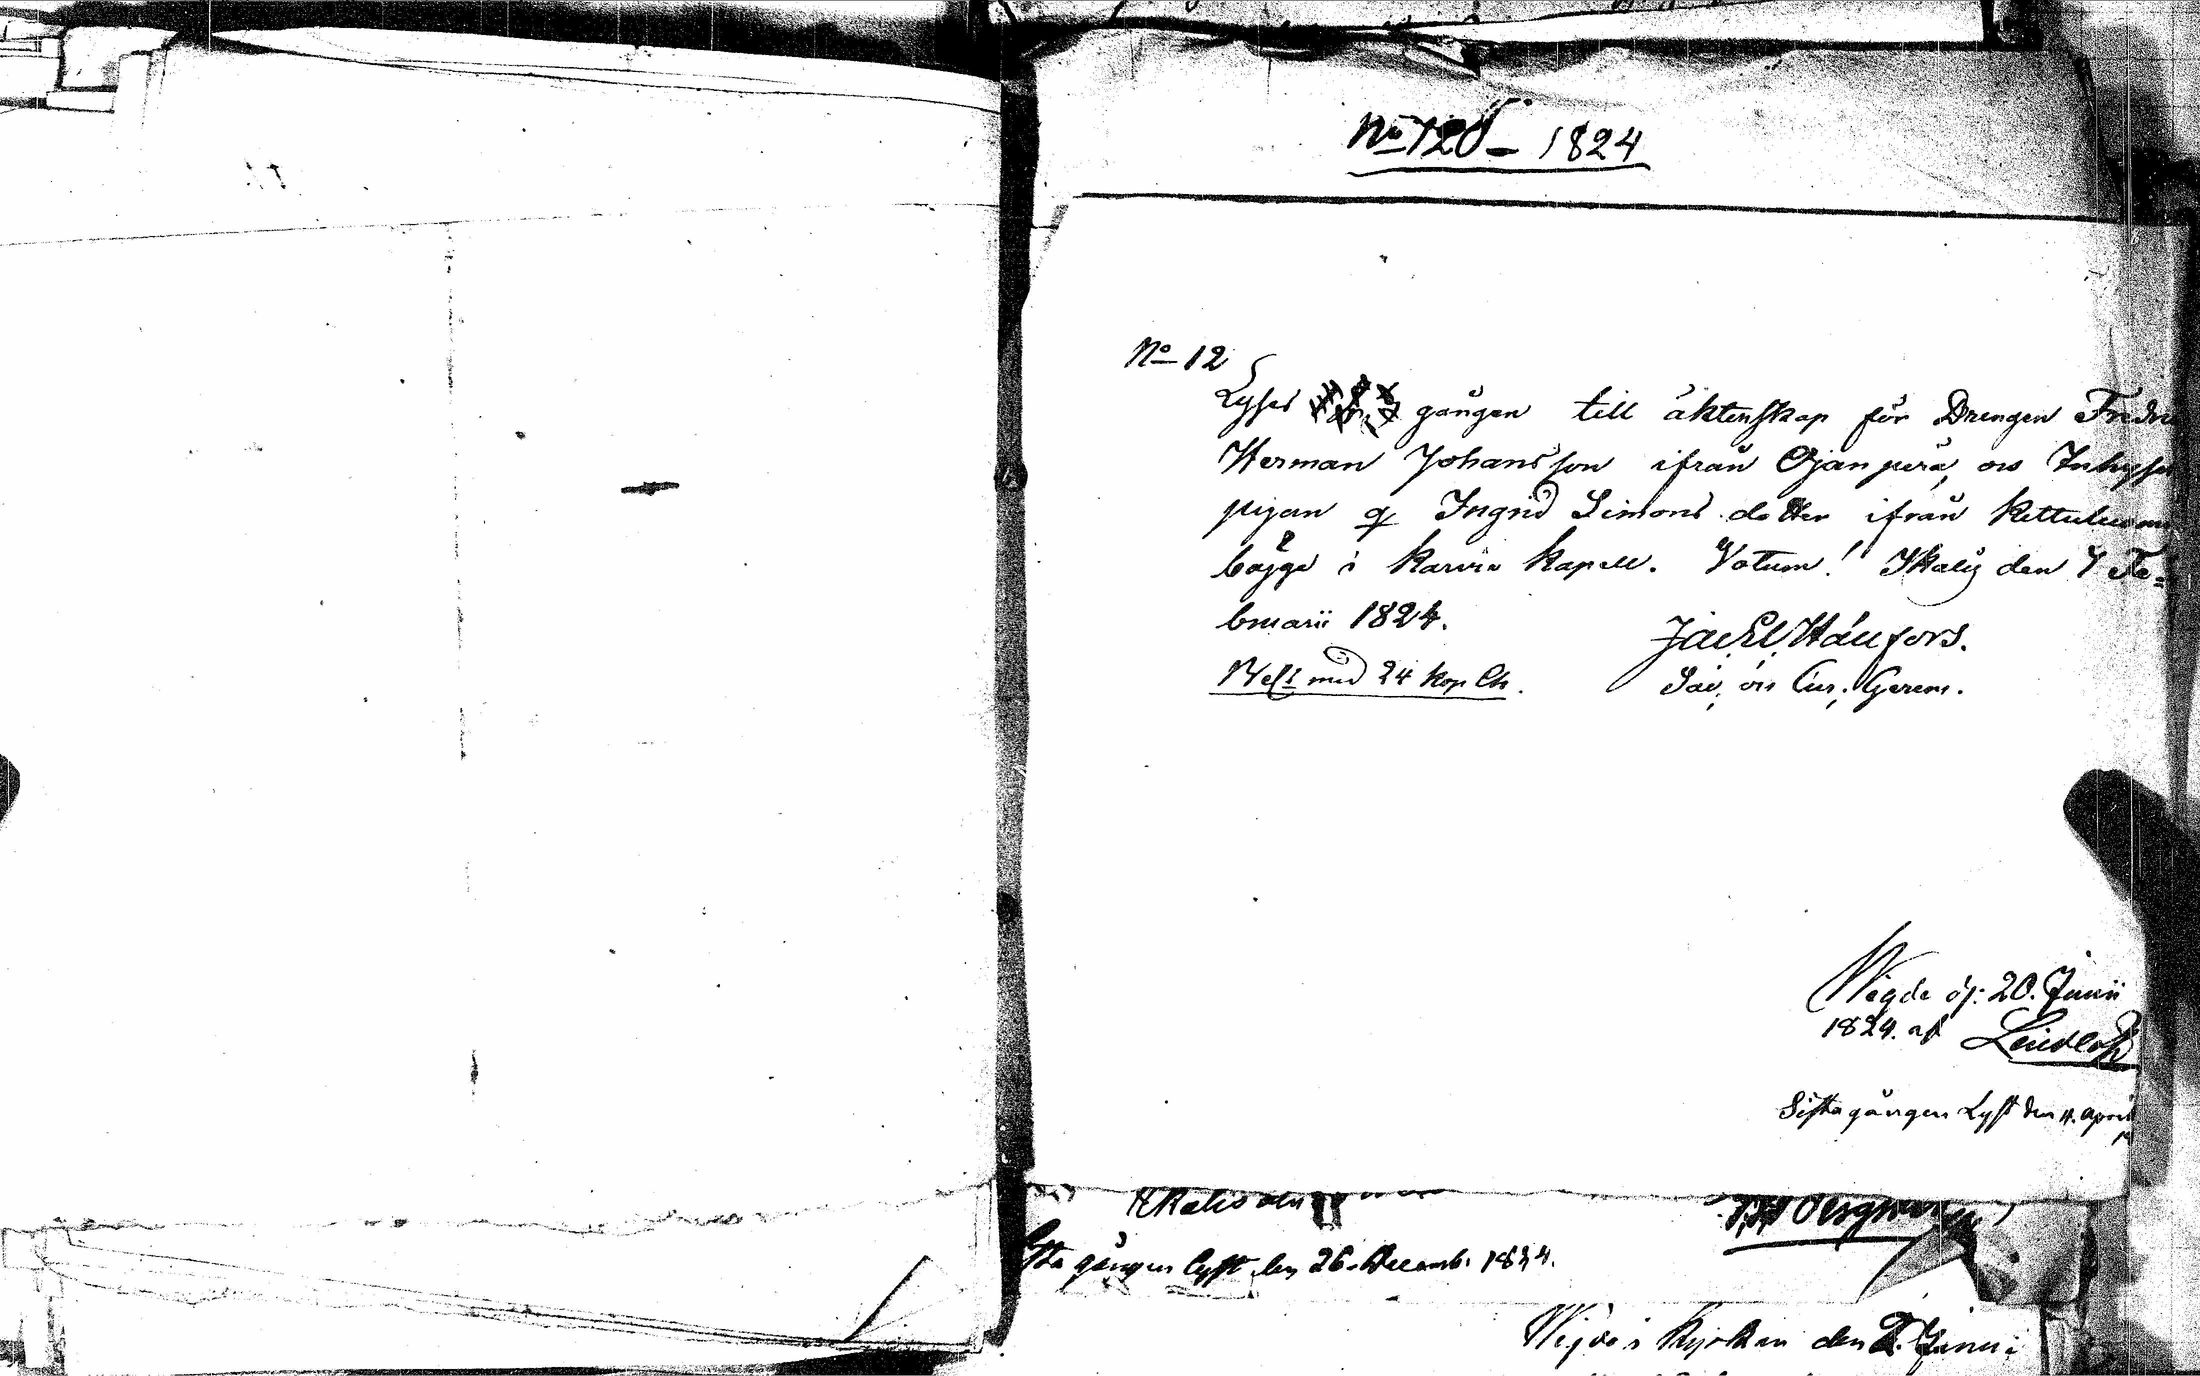 No 120 - 1824
No 12
Lyses gången till äktenskap för Drengen Fredri
Herman Johansson ifrån Ojanperä, os Inhyses
pigan q Ingrid Simons dotter ifrån Kettulu
bägge i Karvia Kapell. Votum! Ikalis den 7 Fe=
bruarii 1824.
Jac. El. Hällfors.
Sac, ois Cur, Gerens.
med 24 Kop
Wigde d: 20. Junii
1824. af
Sista gången Lyst den 11. April
Ikalis den
sta gången lyst den 26. Decemb. 1824.
Wigde i Kyrkan den 2. Junii